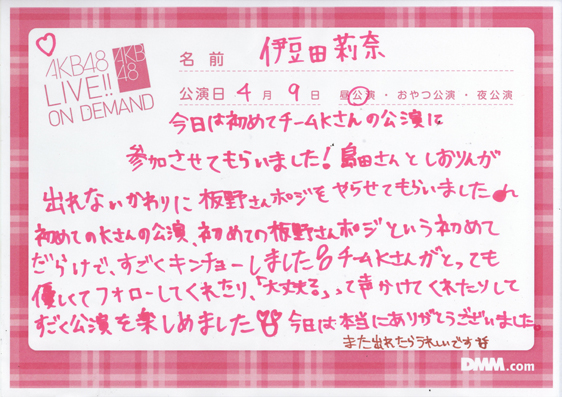 AKB48
LIVE!!
ON DEMAND
AKB
48
名前 伊豆田莉奈
公演日 4月9日 昼公演・おやつ公演・夜公演
今日は初めてチームKさんの公演に
参加させてもらいました!島田さんとしおりんが
出れないかわりに板野さんポジをやらせてもらいました♪
初めてのKさんの公演、初めての板野さんポジという初めて
だらけで、すごくキンチョーしました チームKさんがとっても
優しくてフォローしてくれたり、「大丈夫?」って声かけてくれたりして
すごく公演を楽しめました 今日は本当にありがとうございました。
また出れたらうれしいです
DMM.com